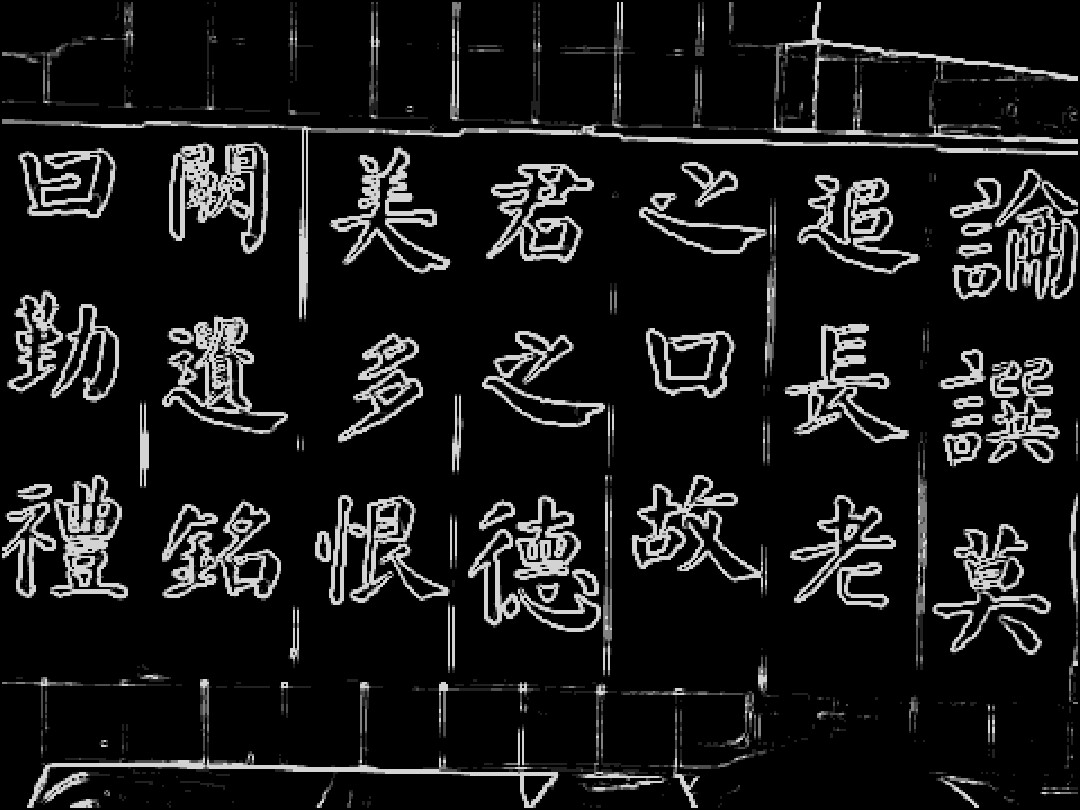 論譔莫
追長老
之口故
君之德
美多恨
闕遺銘
曰勤禮